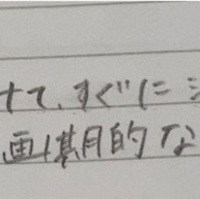 て、すぐに
画期的な